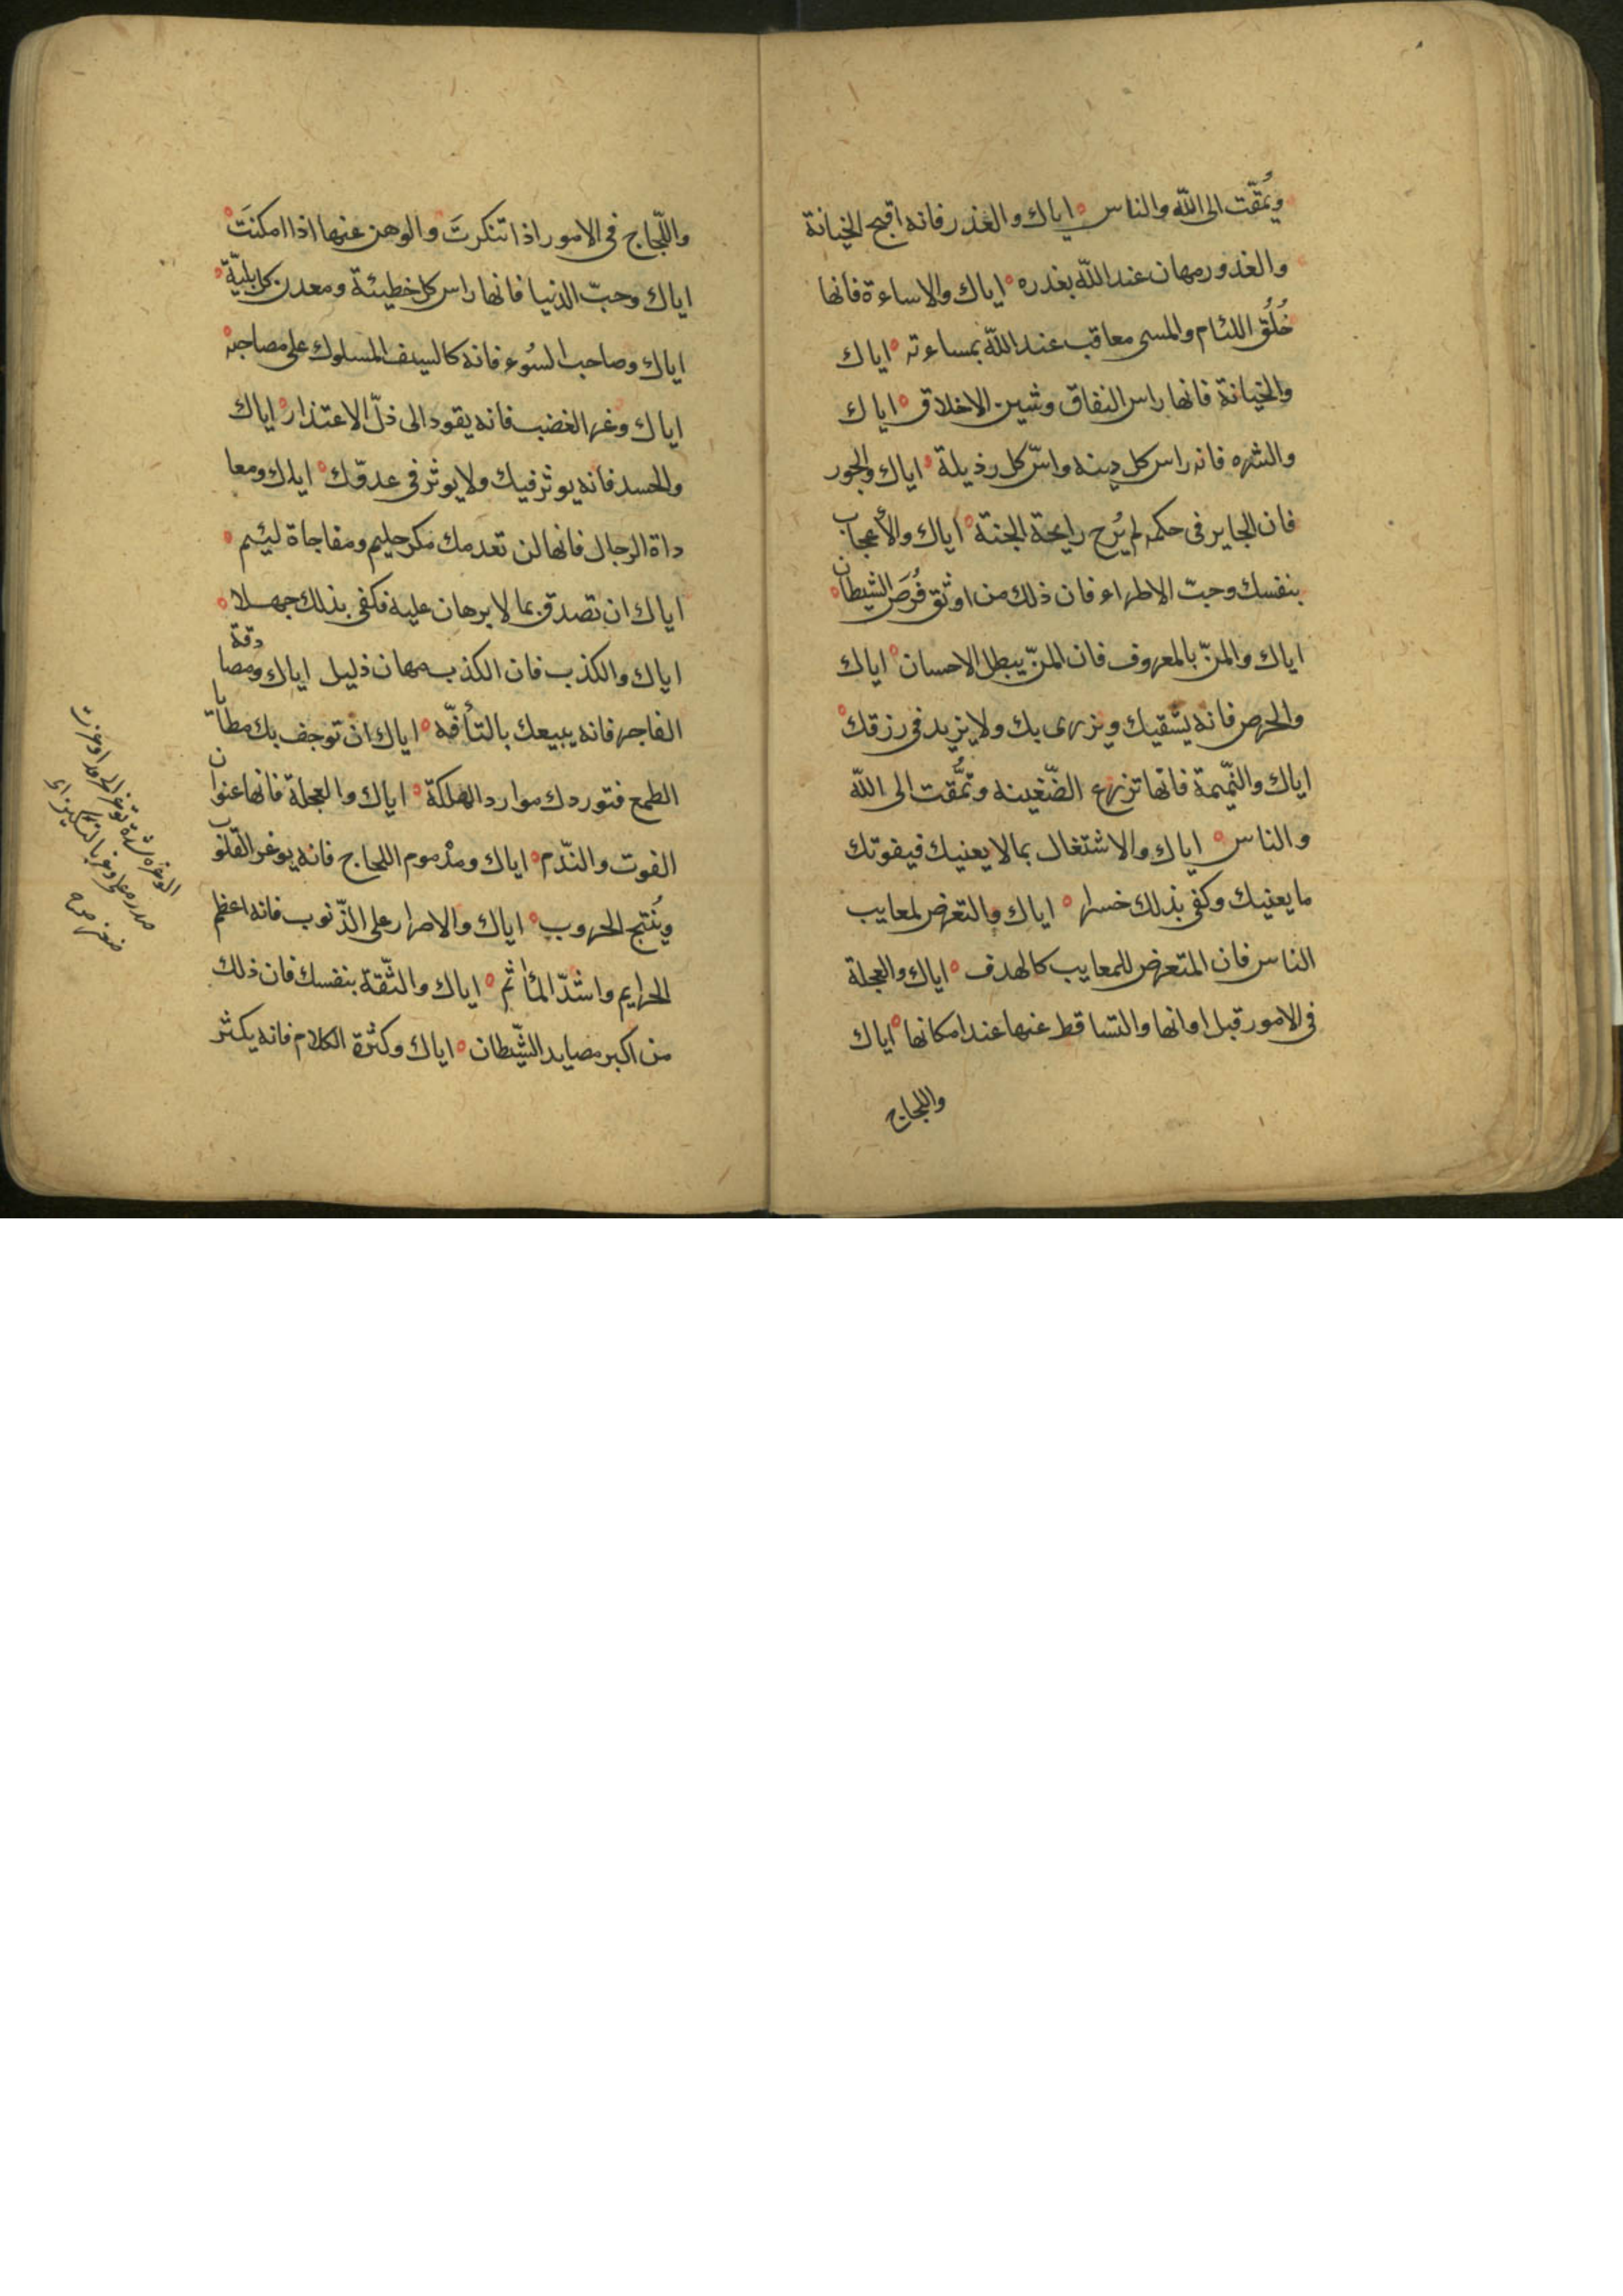 ويُمَقّت الى اللّه والناس اياك والغذر فانه اقبح الخيانة
والغذور مهان عند اللّه بغدره اياك والاساءة فانها
خُلُق اللئام والمسى معاقب عند اللّه بمساءته اياك
والخيانة فانها راس النفاق وشين الاخلاق اياك
والشره فانه راس كل دينه واسّ كل رذيلة اياك والجور
فان الجاير فى حكمه لم يُرح رايحة الجنة اياك والأعجاب
بنفسك وحبّ الاطراء فان ذلك من اوثق فُرَص الشيطان
اياك والمنّ بالمعروف فان المنّ يبطل الاحسان اياك
والحرص فانه يشقيك ويزرى بك ولا يزيد فى رزقك
اياك والنّميمة فانّها تزرع الضّغينه وتمُقّت الى اللّه
والناس اياك والاشتغال بما لا يعنيك فيفوتك
ما يعنيك وكفى بذلك خسرا اياك والتعرض لمعايب
الناس فان المتعرض للمعايب كالهدف اياك والعجلة
فى الامور قبل اوانها والتساقط عنها عند امكانها اياك
واللجاج
واللّجاج فى الامور اذا تنكرتَ والوهن عنها اذا امكنَتَ
اياك وحبّ الدنيا فانها راس كل خطيئة ومعدن كل بليّة
اياك وصاحب السُوء فانه كالسيف المسلوك على مصاحبه
اياك وغر الغضب فانه يقود الى ذلّ الاعتذار اياك
والحسد فانه يوثر فيك ولا يوثر فى عدوّك اياك ومعا
داة الرجال فانها لن تعدمك مكر حليم ومفاجاة لئيم
اياك ان تصدق بما لا برهان عليه فكفى بذلك جهلا
اياك والكذب فان الكذب مهان ذليل اياك ومصادقة
الفاجر فانه يبيعك بالتأفّه اياك ان توجف بك مطايا
الطمع فتوردك موارد الهلكة اياك والعجلة فانها عنوان
الفوت والنّدم اياك ومذموم اللجاج فانه يوغر القلوب
ويُنتج الحروب اياك والاصرار على الذّنوب فانه اعظم
الجرايم واشدّ المأثم اياك والثّقة بنفسك فان ذلك
من اكبر مصايد الشّيطان اياك وكثرة الكلام فانه يكثر